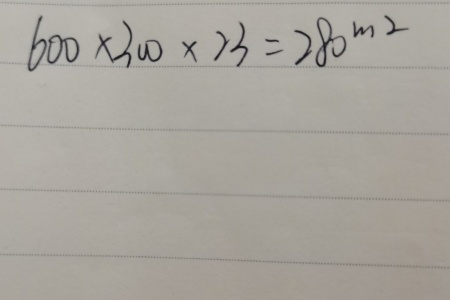 600×300×23=280m2